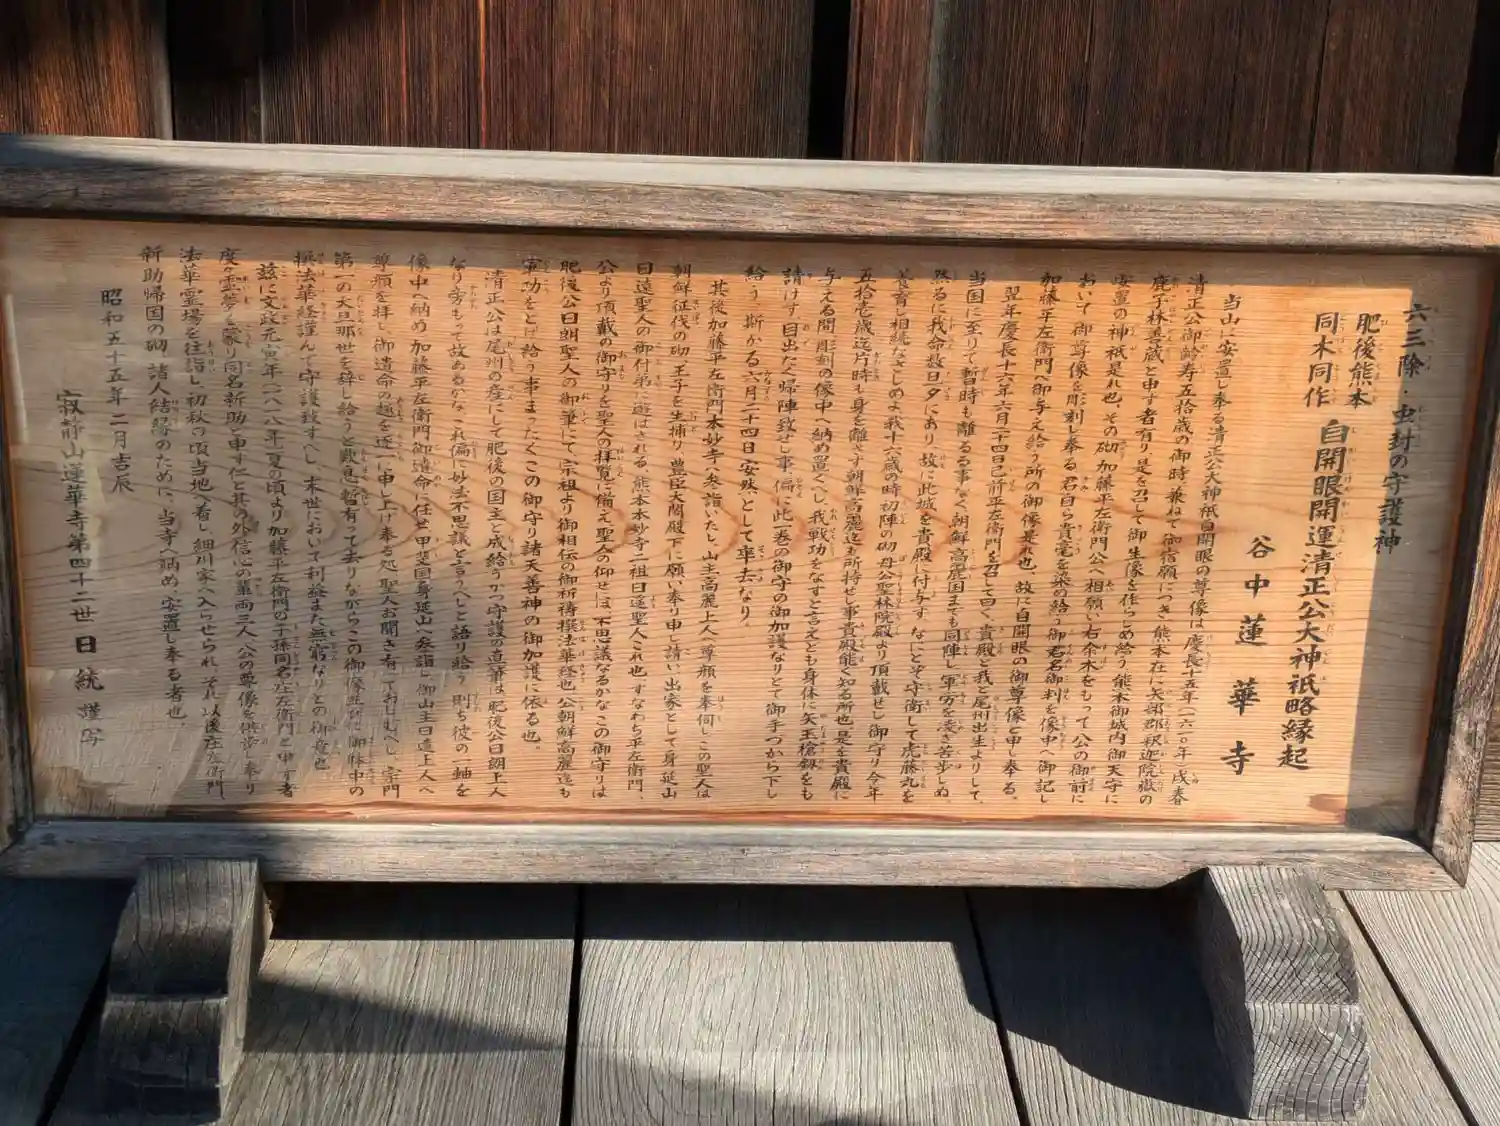 六三除・虫封の守護神
肥後熊本
同木同作
自開眼開運清正公大神祇略縁起
谷中蓮華寺
当山に安置し奉る清正公大神祇自開眼の尊像は慶長十五年(一六一〇年)戌春
清正公御齢寿五拾歳の御時兼ねて御宿願につき熊本在に矢部郡釈迦院嶽の
鹿子林善蔵と申す者有り是を召して御生像を作らしめ給う熊本御城内御天守に
安置の神祇是れ也、その砌加藤平左衛門公へ相願い右余木をもって公の御前に
おいて御尊像を彫刻し奉る君自ら貴毫を染め給う御君名御判を像中へ御記し
加藤平左衛門へ御与え給う所の御像是れ也、故に自開眼の御尊像と申し奉る。
翌年慶長十六年六月二十四日己前平左衛門を召して曰く、貴殿と我と尾州出生よりして、
当国に至りて暫時も離るる事なく朝鮮高麗国までも同陣し軍労を凌ぎ苦歩しぬ、
然るに我命数旦夕にあり、故に此城を貴殿へ付与す、なにとぞ守衛して虎藤丸を
養育し相続なさしめよ我十六歳の時初陣の砌母公聖林院殿より頂戴せし御守り今年
五拾壱歳迄片時も身を離さず朝鮮高麗迄も所持せし事貴殿能く知る所也是を貴殿に
与える間彫刻の像中へ納め置くべし、我戦功をなすと言えども身体に矢玉槍釼をも
請けず、目出たく帰陣致せし事、偏に此一巻の御守の御加護なりとて御手づから下し
給う、斯かる六月二十四日安然として率去なり、
其後加藤平左衛門本妙寺へ参詣いたし、山主高麗上人へ尊顔を奉伺しこの聖人は
朝鮮征伐の砌王子を生捕り豊臣大閤殿下に願い奉り申し請い出家として身延山
日遠聖人の御付弟に遊ばされる、熊本本妙寺二祖日遥聖人これ也すなわち平左衛門、
公より頂戴の御守りを聖人の拝覧に備え聖人の仰せは、不思議なるかなこの御守りは
肥後公日朗聖人の御筆にて、宗祖より御相伝の御祈祷撰法華経也、公朝鮮高麗迄も
軍功をとげ給う事まったくこの御守り諸天善神の御加護に依る也。
清正公は尾州の産にして肥後の国主と成給うかつ守護の直筆は肥後公日朗上人
なり旁もって故あるかな、これ偏に妙法不思議と言うべしと語り給う、則ち彼の一軸を
像中へ納め加藤平左衛門御遺命に任せ甲斐国身延山へ参詣し御山主日遠上人へ
尊顔を拝し、御遺命の趣を逐一に申し上げ奉る処聖人お聞き有ってお
第一の大旦那世を辞し給うと歎息暫有って去りながらこの御像並びに御躰中の
撰法華経謹んで守護致すべし、末世において利益また無窮なりとの御意也
茲に文政元寅年(一八一八年)夏の頃より加藤平左衛門の子孫同名左左衛門と申す者
度々霊夢を蒙り同名新助と申す仁と其の外信心の輩両三人公の尊像を供奉し奉り
法華霊場を往詣し、初秋の頃当地へ着し細川家へ入らせられ、それ以後左左衛門
新助帰国の砌、諸人結縁のために、当寺へ納め安置し奉る者也。
昭和五十五年二月吉辰
寂静山蓮華寺第四十二世日統謹写